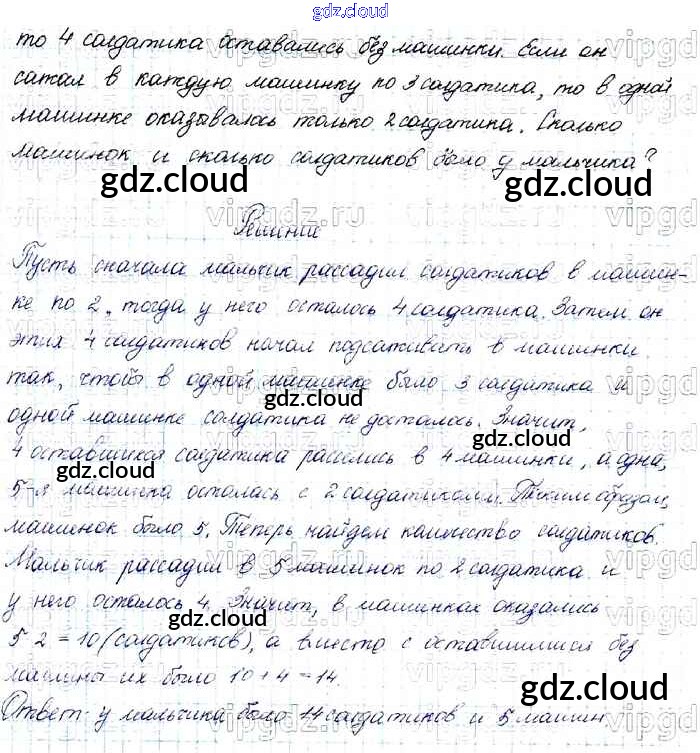 gdz.cloud
то 4 солдатика оставались без машинки. Если он
сажал в каждую машинку по 3 солдатика, то в одной
машинке оказывалось только 2 солдатика. Сколько
машинок и сколько солдатиков было у мальчика?
gdz.cloud
gdz.cloud
Решение
Пусть сначала мальчик рассадил солдатиков в машин-
ке по 2, тогда у него осталось 4 солдатика. Затем он
этих 4 солдатиков начал подсаживать в машинки
так, чтобы в одной машинке было 3 солдатика и
gdz.cloud
одной машинке солдатика не досталось. Значит,
gdz.cloud
4 оставшихся солдатика расселись в 4 машинки, а одна,
gdz.cloud
5-я машинка осталась с 2 солдатиками. Таким образом,
машинок было 5. Теперь найдем количество солдатиков.
Мальчик рассадил в 5 машинок по 2 солдатика и
у него осталось 4. Значит, в машинках оказались
gdz.cloud
5 2 = 10 (солдатиков), а вместе с оставшимися без
машины их было 10 + 4 = 14.
gdz.cloud
Ответ: у мальчика было 14 солдатиков и 5 машин